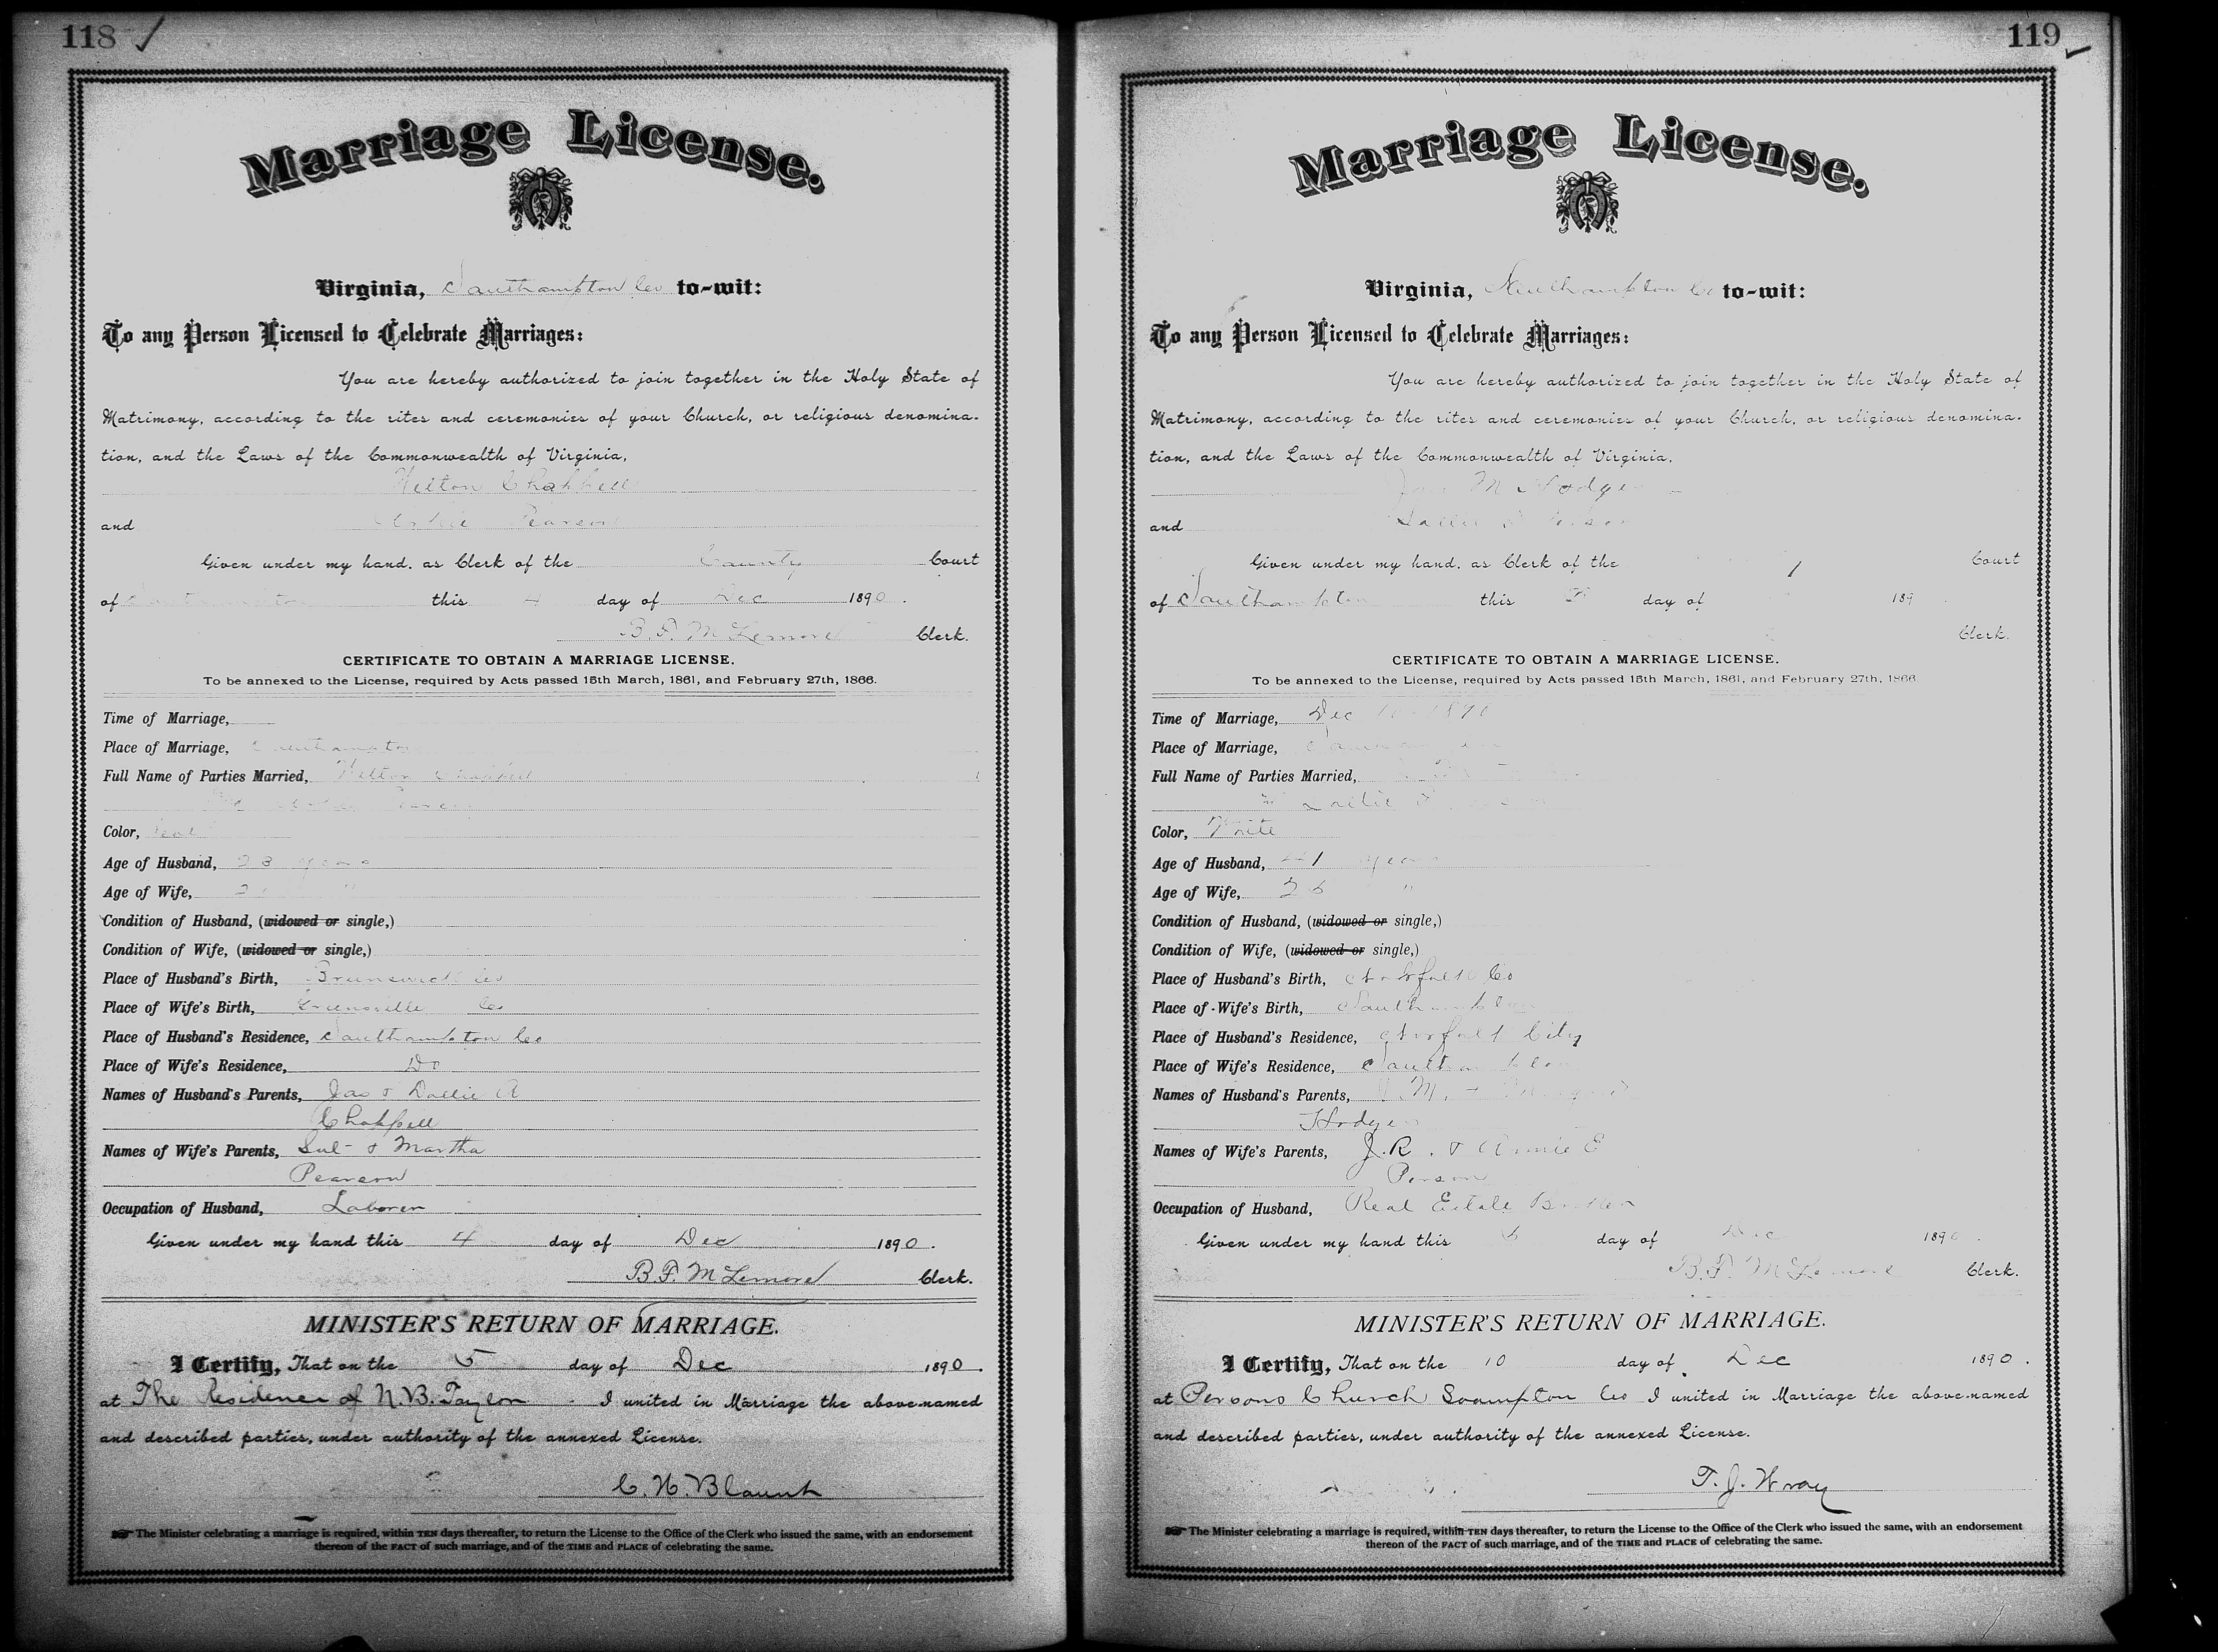 118
Marriage License.
Virginia, Southampton Co to-wit:
To any Person Licensed to Celebrate Marriages:
You are hereby authorized to join together in the Holy State of
Matrimony, according to the rites and ceremonies of your Church, or religious denomina-
tion, and the Laws of the Commonwealth of Virginia,
Welton Chappell
and Pearson
Given under my hand, as Clerk of the County Court
of this 4 day of Dec 1890.
B. F. McLemore Clerk.
CERTIFICATE TO OBTAIN A MARRIAGE LICENSE.
To be annexed to the License, required by Acts passed 15th March, 1861, and February 27th, 1866.
Time of Marriage,
Place of Marriage, Southampton
Full Name of Parties Married, Welton Chappell
Color,
Age of Husband, 23 years
Age of Wife, "
Condition of Husband, (widowed or single,)
Condition of Wife, (widowed or single,)
Place of Husband's Birth, Brunswick Co
Place of Wife's Birth, Greensville Co
Place of Husband's Residence, Southampton Co
Place of Wife's Residence, Do
Names of Husband's Parents, Jas & Dollie R
Chappell
Names of Wife's Parents, Sul- & Martha
Pearson
Occupation of Husband, Laborer
Given under my hand this 4 day of Dec 1890.
B. F. McLemore Clerk.
MINISTER'S RETURN OF MARRIAGE.
I Certify, That on the 5 day of Dec 1890.
at The Residence of N. B. Taylor I united in Marriage the above-named
and described parties, under authority of the annexed License.
C. H. Blount
The Minister celebrating a marriage is required, within TEN days thereafter, to return the License to the Office of the Clerk who issued the same, with an endorsement
thereon of the FACT of such marriage, and of the TIME and PLACE of celebrating the same.
119
Marriage License.
Virginia, Southampton Co to-wit:
To any Person Licensed to Celebrate Marriages:
You are hereby authorized to join together in the Holy State of
Matrimony, according to the rites and ceremonies of your Church, or religious denomina-
tion, and the Laws of the Commonwealth of Virginia,
M Hodges
and Sallie
Given under my hand, as Clerk of the Court
of Southampton this day of 189
Clerk.
CERTIFICATE TO OBTAIN A MARRIAGE LICENSE.
To be annexed to the License, required by Acts passed 15th March, 1861, and February 27th, 1866
Time of Marriage, Dec 10 1890
Place of Marriage,
Full Name of Parties Married,
Sallie
Color, White
Age of Husband, years
Age of Wife, 26 "
Condition of Husband, (widowed or single,)
Condition of Wife, (widowed or single,)
Place of Husband's Birth, Norfolk Co
Place of Wife's Birth, Southampton
Place of Husband's Residence, Norfolk City
Place of Wife's Residence, Southampton
Names of Husband's Parents, M. &
Hodges
Names of Wife's Parents, J. R. & Annie E
Person
Occupation of Husband, Real Estate Broker
Given under my hand this day of Dec 1890.
B. F. McLemore Clerk.
MINISTER'S RETURN OF MARRIAGE.
I Certify, That on the 10 day of Dec 1890.
at Persons Church Soampton Co I united in Marriage the above-named
and described parties, under authority of the annexed License.
T. J. Wray
The Minister celebrating a marriage is required, within TEN days thereafter, to return the License to the Office of the Clerk who issued the same, with an endorsement
thereon of the FACT of such marriage, and of the TIME and PLACE of celebrating the same.